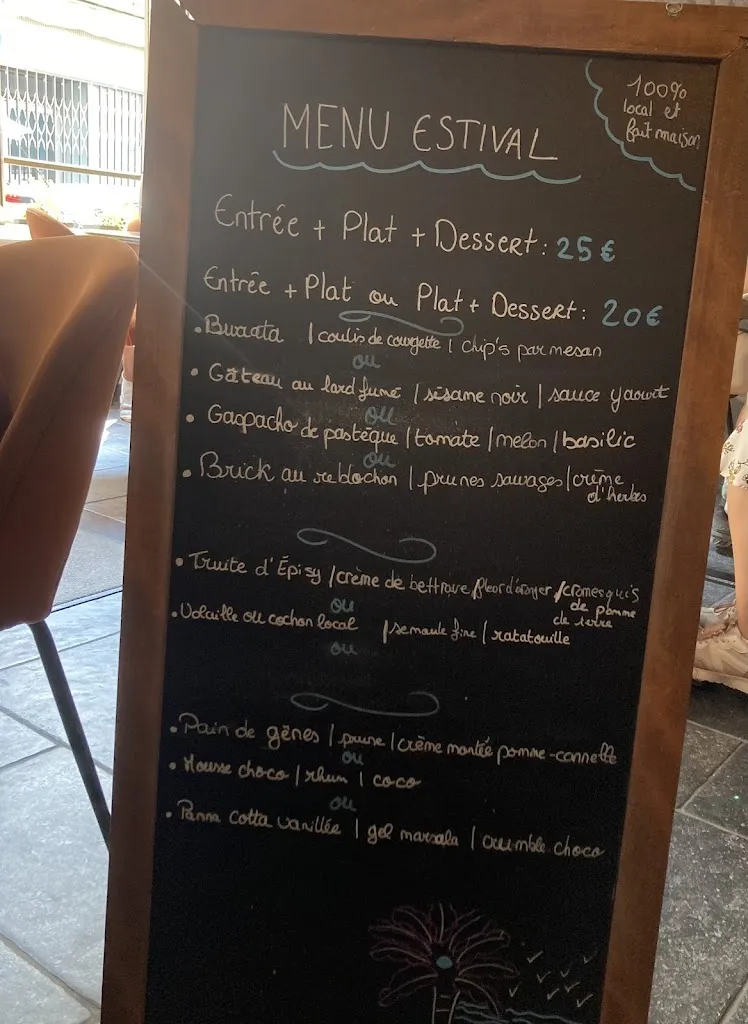 100%
local et
fait maison
MENU ESTIVAL
Entrée + Plat + Dessert : 25€
Entrée + Plat ou Plat + Dessert : 20€
• Burrata / coulis de courgette / chip's parmesan
ou
• Gâteau au lard fumé / sésame noir / sauce yaourt
ou
• Gaspacho de pastèque / tomate / melon / basilic
ou
• Brick au reblochon / prunes sauvages / crème
d'herbes
• Truite d'Épisy / crème de bettrave fleur d'oranger / cromesquis
de pomme
de terre
ou
• Volaille ou cochon local / semoule fine / ratatouille
ou
• Pain de gênes / prune / crème montée pomme-cannelle
ou
• Mousse choco / rhum / coco
ou
• Panna cotta vanillée / gel marsala / crumble choco